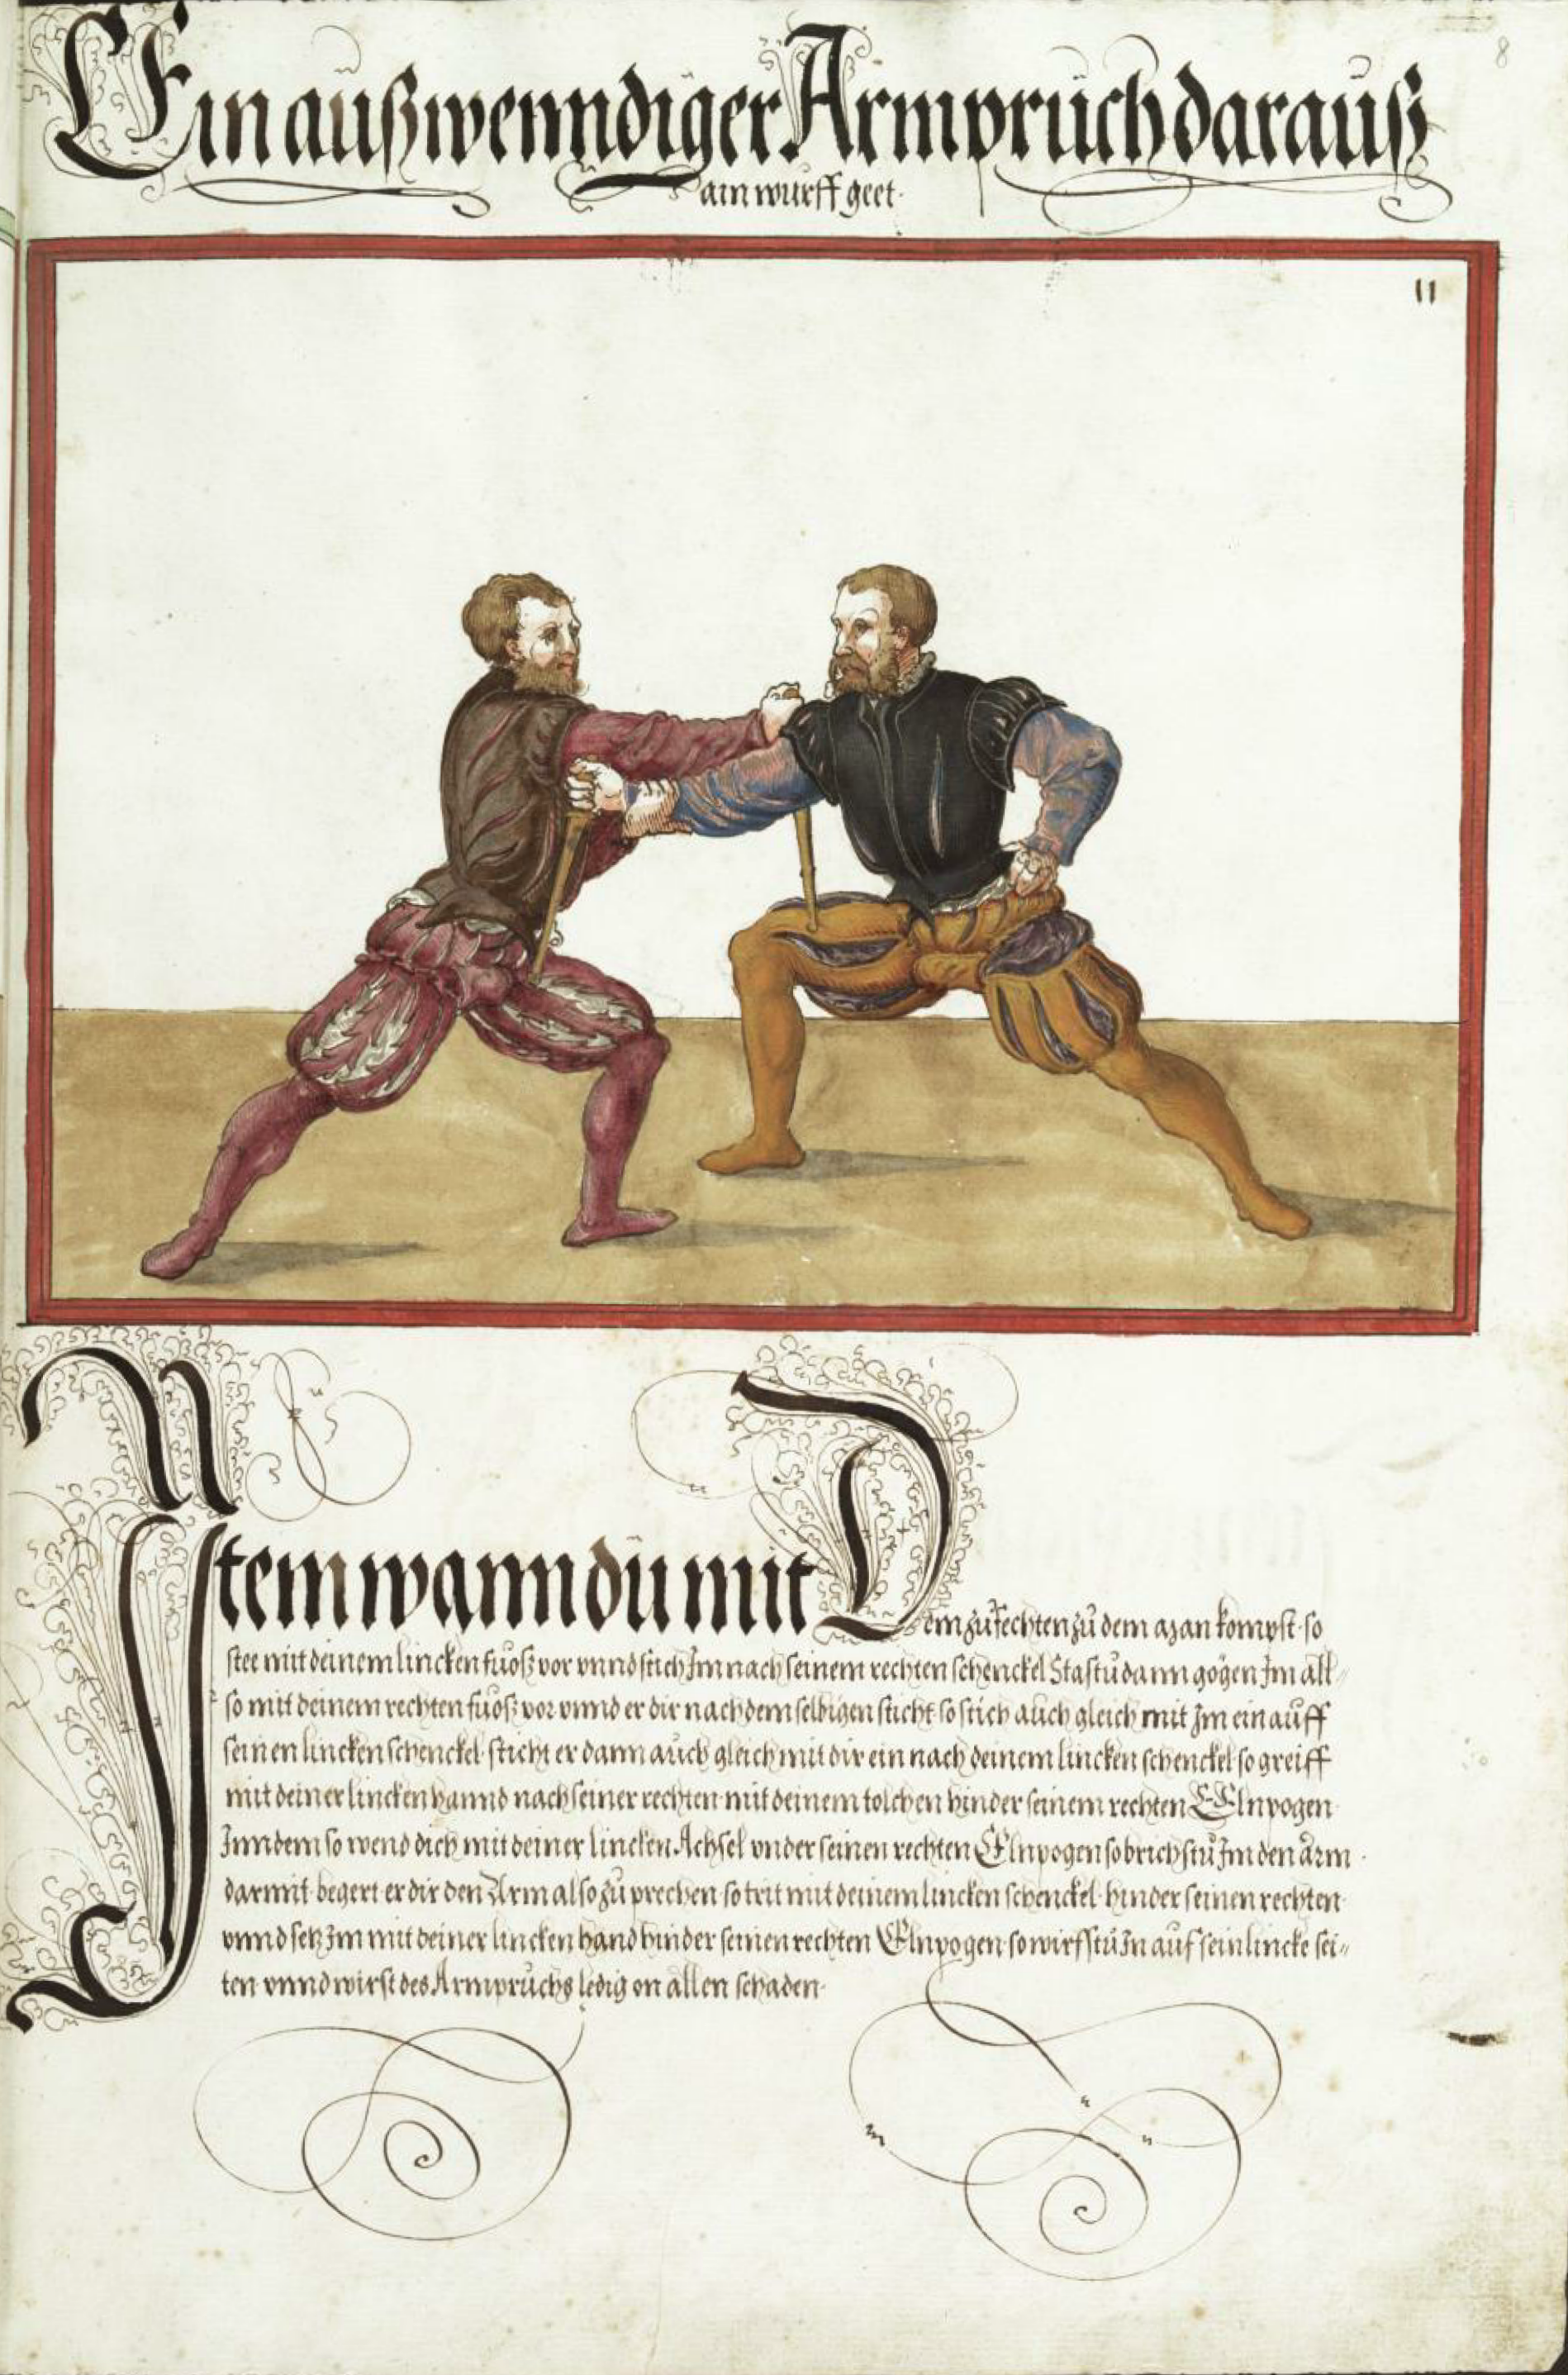 Ein außwenndiger Armprüch darauß
ain wurff geet.
8
11
Item wann dü mit Dem zü fechten zü dem man kompst so
stee mit deinem lincken füoß vor vnnd stich Im nach seinem rechten schenckel Stastü dann gögen Im all-
so mit deinem rechten füoß vor vnnd er dir nach dem selbigen sticht so stich auch gleich mit Im ein auff
seinen lincken schenckel sticht er dann auch gleich mit dir ein nach deinem lincken schenckel so greiff
mit deiner lincken hannd nach seiner rechten mit deinem tolchen hinder seinem rechten Elnpogen
Inn dem so wend dich mit deiner lincken Achsel vnder seinen rechten Elnpogen so brichstü Im den arm
darmit begert er dir den Arm also zü prechen so trit mit deinem lincken schenckel hinder seinen rechten
vnnd setz Im mit deiner lincken hand hinder seinen rechten Elnpogen so wirfstü In auf sein lincke sei-
ten vnnd wirst des Armprüchs ledig on allen schaden.